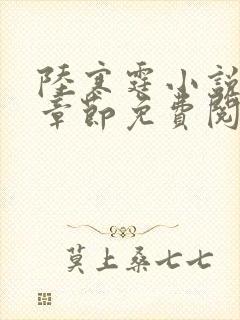 陸寒霆小說
章節免費閱
莫上桑七七